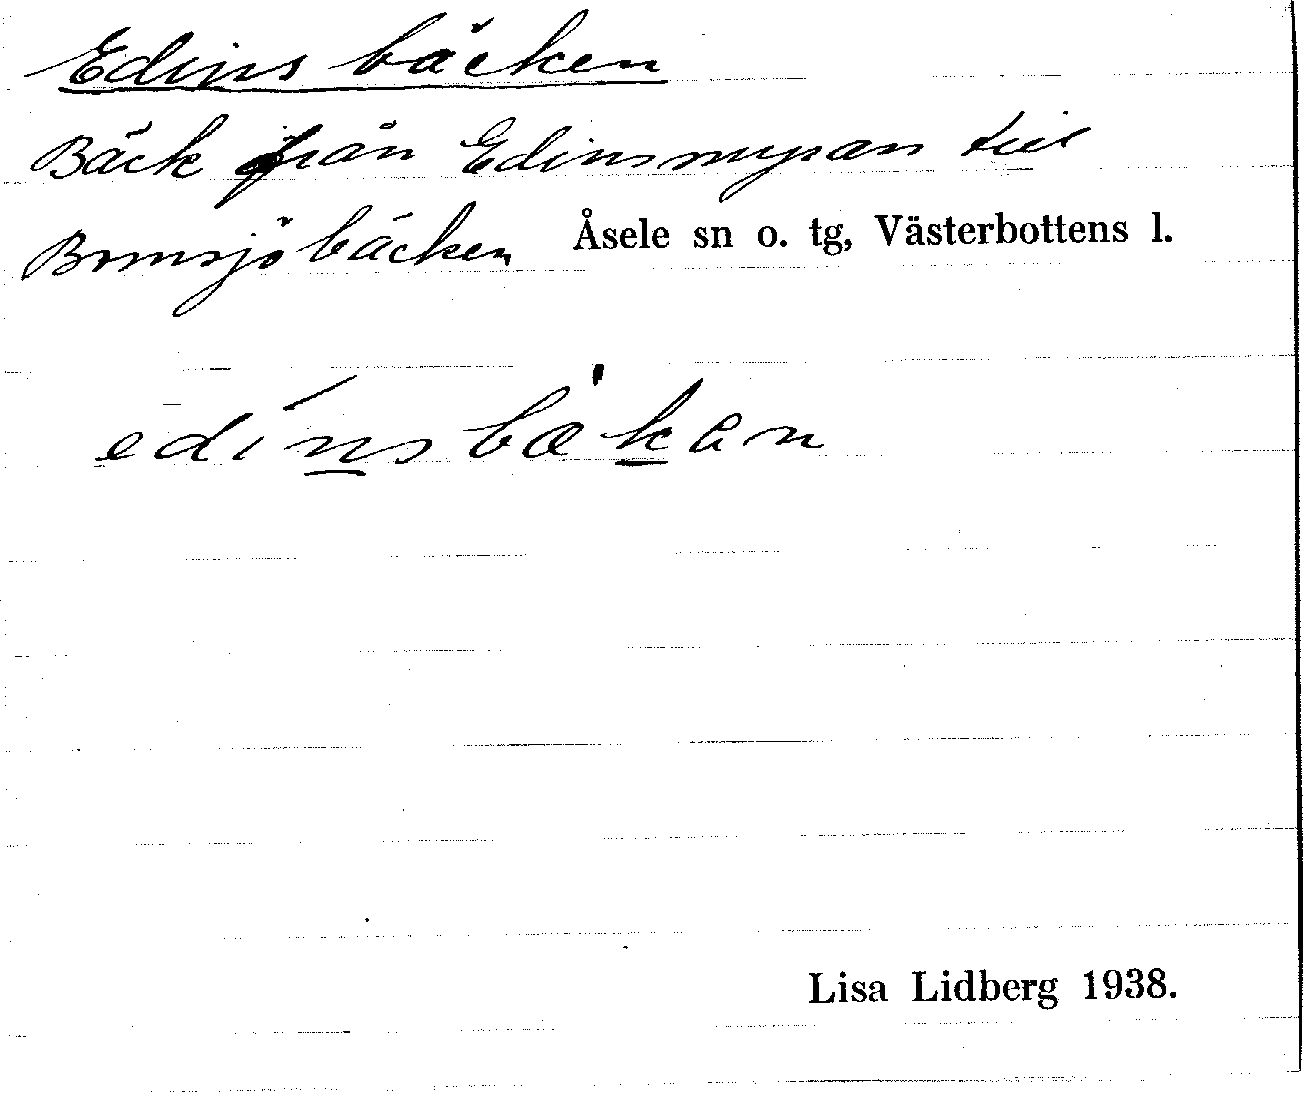 Edins bäcken
Bäck från Edinsmyran till
Bomsjöbäcken Åsele sn o. tg, Västerbottens l.
edínsbæ̀ken
Lisa Lidberg 1938.